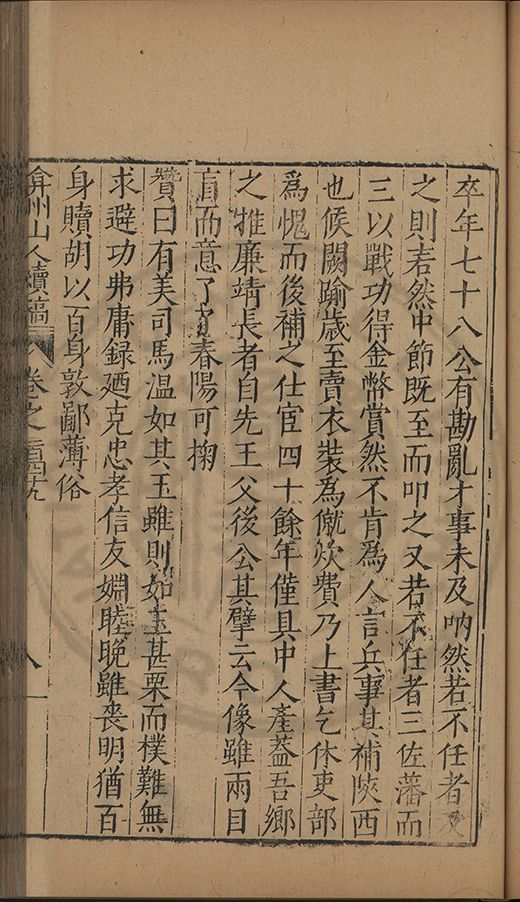 卒年七十八公有勘亂才事未及吶然若不任者及
之則若然中節既至而叩之又若不任者三佐藩而
三以戰功得金幣賞然不肯為人言兵事其補陝西
也候闕踰歲至賣衣裝為僦炊費乃上書乞休吏部
為愧而後補之仕宦四十餘年僅具中人產葢吾鄉
之推廉靖長者自先王父後公其擘云今像雖兩目
盲而意了了春陽可掬
贊曰有美司馬溫如其玉雖則如玉甚栗而樸難無
求避功弗庸録廼克忠孝信友婣睦晚雖喪明猶百
身贖胡以百身敦鄙薄俗
弇州山人續稿 卷之一百四十九 八